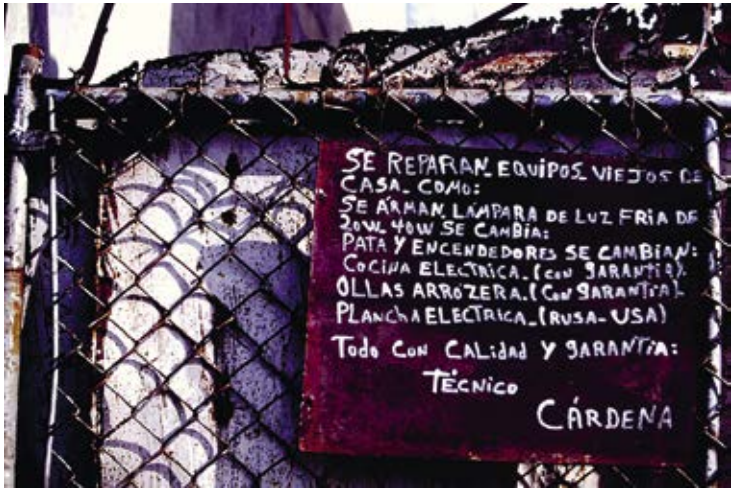 SE REPARAN EQUIPOS VIEJOS DE
CASA. COMO:
SE ARMAN LÁMPARA DE LUZ FRIA DE
20W. 40W SE CAMBIA:
PATA Y ENCENDEDORES SE CAMBIAN:
COCINA ELECTRICA. (CON GARANTÍA).
OLLAS ARRÓZERA. (CON GARANTÍA).
PLANCHA ELECTRICA. (RUSA-USA)
TODO CON CALIDAD Y GARANTÍA:
TÉCNICO
CÁRDENA